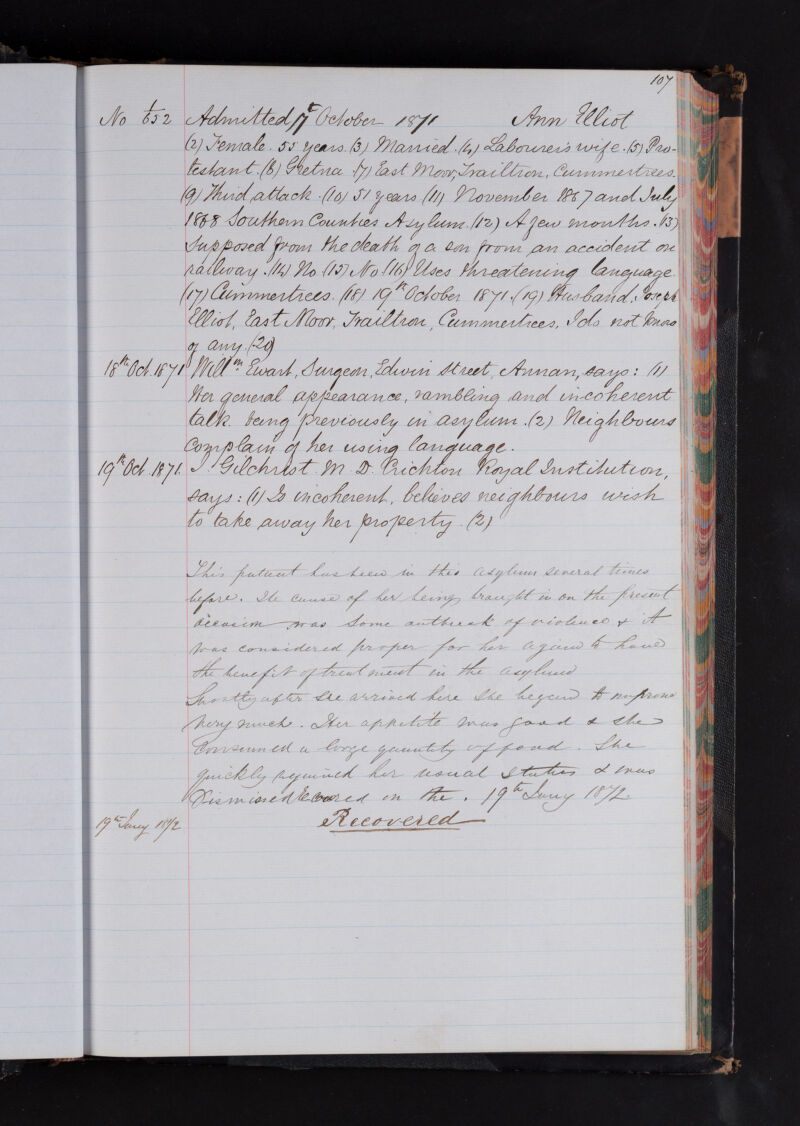 107
No 652 Admitted 17t October 1871 Ann Elliot
(2) Female. 55 years. (3) Married. (4) Labourer's wife. (5) Pro-
testant. (6) Gretna. (7) East Moor, Trailtron, Cummertrees.
(9) Third attack. (10) 51 years (11) November 1867 and July
1868 Southern Counties Asylum. (12) A few months. (13)
Supposed from the death of a son from an accident on
railway. (14) No (15) No (16) Uses threatening language.
(17) Cummertrees. (18) 19th October 1871. (19) Husband: Joseph
Elliot, East Moor, Trailtron, Cummertrees. I do not know
of any. (20)
18th Oct. 1871 Willm Ewart, Surgeon, Edwin Street, Annan, says: (1)
Her general appearance, rambling and incoherent
talk. being previously in asylum. (2) Neighbours
complain of her using language.
19th Oct. 1871. J Gilchrist M D. Crichton Royal Institution,
says: (1) Is incoherent, believes neighbours wish
to take away her property. (2)
This patient has been in this asylum several times
before. The cause of her being brought in on the present
occasion was some outbreak of violence & it
was considered proper for her again to have
the benefit of treatment in the asylum
Shortly after she arrived here she began to improve
very much. Her appetite was good & she
consumed a large quantity of food. She
quickly regained her usual status & was
Dismissed in the. 19th Jany 1872
19th Jany 1872 Recovered